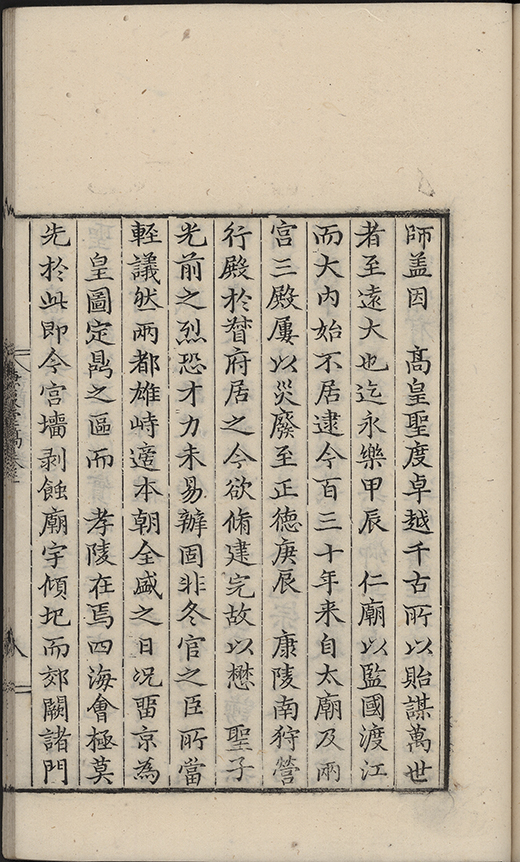 師盖因　髙皇聖度卓越千古所以貽謀萬世
者至遠大也迄永樂甲辰　仁廟以監國渡江
而大内始不居逮今百三十年来自太廟及兩
宫三殿屢以災廢至正德庚辰　康陵南狩營
行殿於督府居之今欲脩建完故以懋　聖子
光前之烈恐才力未易辦固非冬官之臣所當
輕議然兩都雄峙適本朝全盛之日况畱京為
　皇圖定鼎之區而　孝陵在焉四海會極莫
先於此即今宫墻剥蝕廟宇傾圮而郊闕諸門